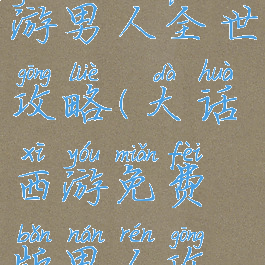 游男人全世
gōng lüè dà huà
攻略(大话
xī yóu miǎn fèi
西游免费
bǎn nán rén gōng
版男人攻